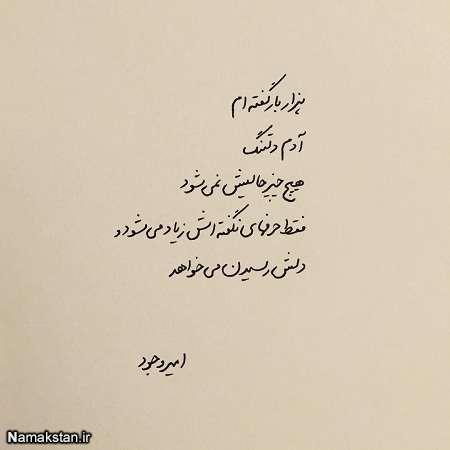 هزار بار گفته ام
آدم دلتنگ
هیچ چیز حالیش نمی شود
فقط حرفهای نگفته اش زیاد می شود و
دلش رسیدن می خواهد
امیر وجود
Namakstan.ir